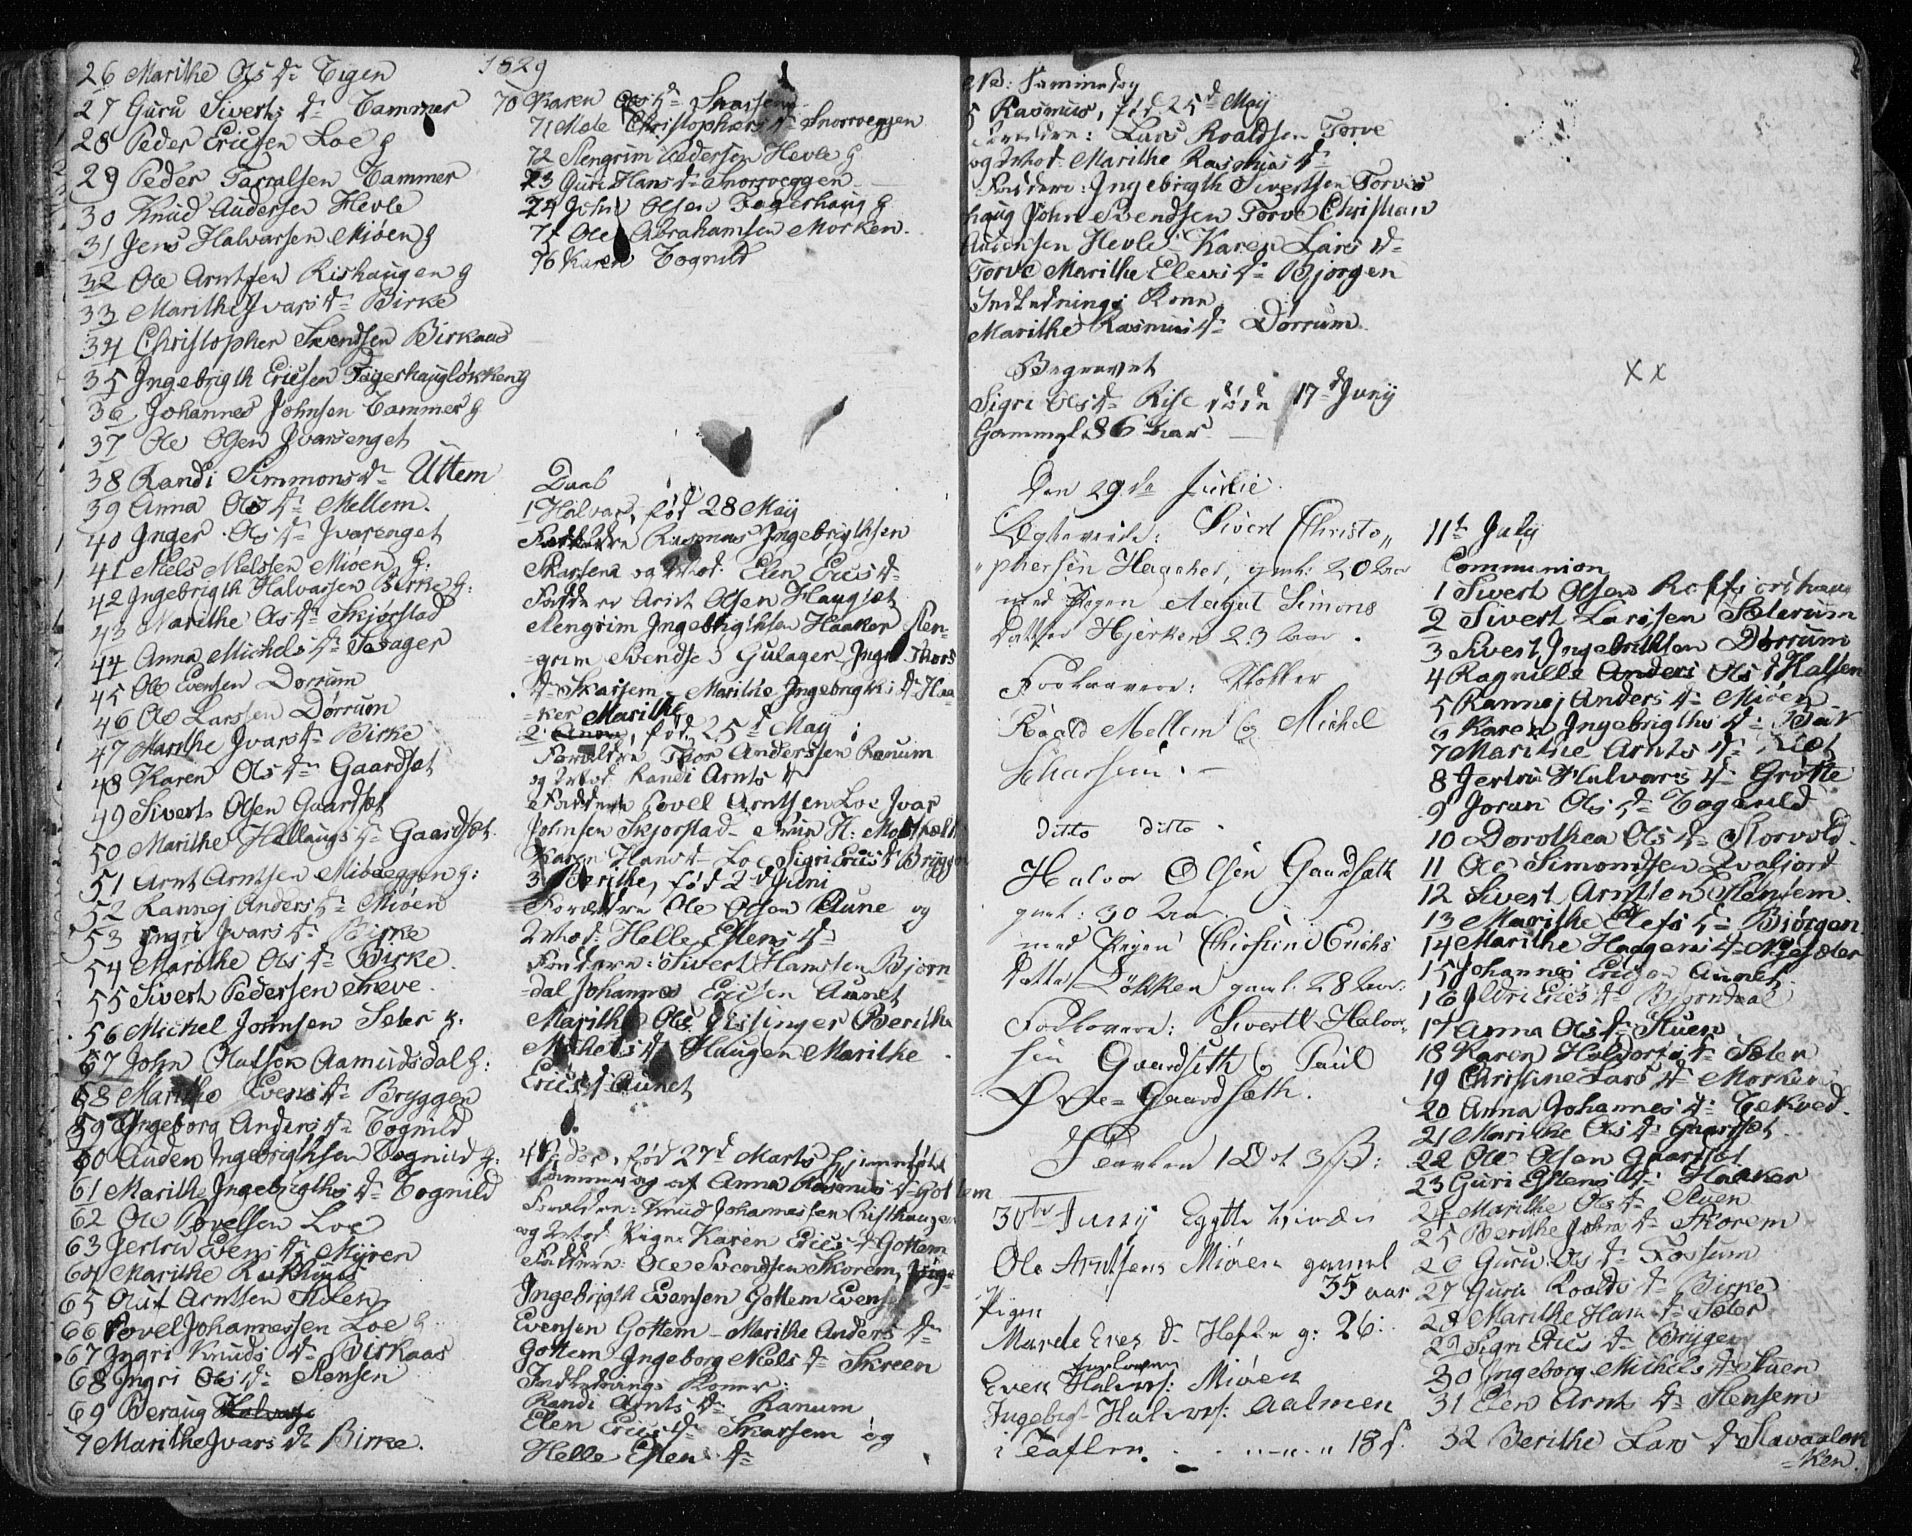 26 Marithe Ols dr Eigen
27 Guru Siverts dr Tammer
28 Peder Ericsen Loe g
29 Peder Tarralsen Tammer
30 Knud Audensen Hevle
31 Jens Halvarsen Mioen g
32 Ole Arntsen Rishaugen g
33 Marithe Jvars dr Birke
34 Christopher Svendsen Birkaas
35 Jngebrigth Ericsen Fageshaugløkken g
36 Johannes Johnsen Tammer g
37 Ole Olsen Jvarsenget
38 Randi Simmons dr Uttem
39 Anna Ols dr Mellem.
40 Jnger Ols dr Jvarsenget
41 Niels Nielssen Mioen g:
42 Jngebrigth Halvarsen Birke g:
43 Marithe Ols dr Skjørstad
44 Anna Michels dr Tosager
45 Ole Evensen Dorrum
46 Ole Larssen Dørrum
47 Marithe Jvars dr Birke
48 Karen Ols dr Gaardsæt
49 Siverts Olsen Gaardsæt
50 Marithe Hallaugs dr Gaardsæt
51 Arnt Arntsen Mioeggen g:
52 Rannej Anders dr Mioen
53 Jngri Jvars dr Birke
54 Marithe Ols dr Birke
55 Sivert Pedersen Skeve.
56 Michel Johnsen Sæter g.
57 John Olufsen Aamundsdal g:
58 Marithe Evens dr Bryggen
59 Jngeborg Anders dr Tognild
60 Auden Jngebrigthsen Tognild g:
61 Marithe Jngebrigths dr Tognild
62 Ole Povelsen Loe
63 Jertru Evens dr Myren
64 Marithe Rukhuus
65 Oluf Arntsen Stuen
66 Povel Johannessen Loe g
67 Jngri Knuds dr Birkaas
68 Jngri Ols dr Stensen
69 Beraug Halvars
7 Marithe Jvars dr Birke.
1829
70 Karen Ols dr Skarsem
71 Mole Christophers dr Snorreggen
72 Stengrim Pedersen Hevle g
73 Guri Hans dr Snorreggen
74 John Olsen Fagerhaug g
75 Ole Abrahamsen Morken.
76 Karen Tognild
Daab
1 Halvar, fød 28 May
Forældre Rasmus Jngebrigthsen
Skarsem og Mod: Elen Erics dr
Fadder Arnt Olsen Haugsæt
Stengrim Jngebrigthsen Haaker Sten-
-grim Svendsen Gulager Jngri Thors
dr Skarsem - Marithe Jngebrigts dr Haa
-ker Marithe
2 Anne, fød 25d May
Forældre Thor Anderssen Ranum
og Mod Randi Arnts dr
Faddere Povel Arntsen Loe Jvar
Johnsen Skjorstad
Karen Hans dr Loe Sigri Erics dr Bryggen
3 Berithe, fød 2d Juni
Forældre Ole Olsen Aune og
Mod: Helle Estens dr
Faddere: Sivert Hanssen Bjørn
-dal Johannes Ericsen Aunet
Marithe Ols Gisinger Berithe
Michels dr Haugen Marithe
Erics dr Aunet
4 Peder, fød 27d Marts hjemmedøbt
sammedag af Anna Rasmus dr Gottem
Forældre: Knud Johannessen Risthaugen
og Mod Pigen Karen Erics dr Gottem
Faddere: Ole Svendsen Skorem,
Jngebrigth Evensen Gottem Even
Evensen Gottem - Marithe Anders dr
Gottem Jngeborg Niels dr Skreen
Jndlednings Koner:
Randi Arnts dr Ranum
Elen Erics dr Skarsem og
Helle Esten dr
NB: Sammedag
5 Rasmus, fød 25d May
Forældre: Lars Roaldsen Torve
og Mod: Marithe Rasmus dr
Faddere: Jngebrigth Sivertsen Torves
haug John Svendsen Torve Christian
Audensen Hevle Karen Lars dr
Torve Marithe Elevs dr Bjorgen
Jndlednings Kone
Marithe Rasmus dr Dorrum.
Begravet
Sigri Ols dr Rise døde 17d Junij
Gammel 86 aar
Den 29de Junie.
Ægteviede: Sivert Christo„
„phersen Hageher, gml: 20 aar
med Pigen Aagut Simons
Datter Hjerken 23 aar.
Forlovere:
Roald Mellem og Michel
Scharsem. -
ditto ditto.
Halvor Olsen Gaardsæth
gml: 30 aar.
med Pigen Christine Erichs
datter Løkken gaml. 28 aar.
Forlovere: Sivertt Halvor-
sen Gaardseth og Paul
Øvre-Gaardseth.
Tavlen 1 Ort 3 ß:
30te Junij Egtte viede
Ole Arntsen Mioen gamel
35 aar
Pigen
Marete Eves dr Hefle g: 26:
forlovere
Even Halvors: Mioen
Ingebrigt Halvors: Aalmen
i Taflen. . . . 18 s.
11te July
Communion
1 Sivert Olsen
2 Sivert Larssen Sæterum
3 Sivert Jngebrigtsen Dørrum
4 Ragnille Anders Ols d Halsen
5 Rannej Anders dr Mioen
6 Karen Jngebrigths dr
7 Marithe Arnts dr
8 Jertru Halvars dr Grøtte
9 Joran Ols dr Tognild
10 Dorothea Ols dr Storvold.
11 Ole Simonssen Qvaljord
12 Sivert Arntsen Stensem.
13 Marithe Elefs dr Bjørgen
14 Marithe Haagens dr Nysæter
15 Johannes Ericsen Aunet
16 Jldri Erics dr Bjorndaal
17 Anna Ols dr Stuen
18 Karen Haldors dr Sæter
19 Christine Lars dr Morken
20 Anna Johannes dr Ekved.
21 Marithe Ols dr Gaardsæt
22 Ole Olsen Gaardsæt
23 Guri Estens dr Haaker
24 Marithe Ols dr Stuen
25 Berithe John dr Skorem
26 Guru Ols dr Fossum
27 Guru Roalds dr Birke
28 Marithe Hans dr Sæter
29 Sigri Erics dr Bryggen
30 Jngeborg Michels dr Stuen
31 Elen Arnts dr Stensem
32 Berithe Lars d Slavaaløk
-ken.